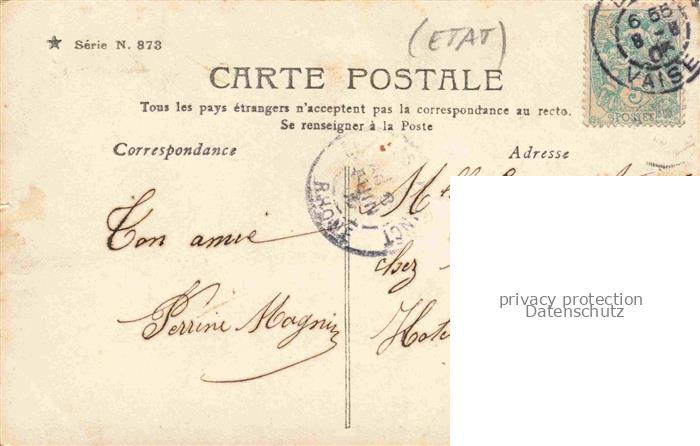 ★ Série N. 873
(ETAT)
CARTE POSTALE
Tous les pays étrangers n'acceptent pas la correspondance au recto.
Se renseigner à la Poste
Correspondance
Adresse
6 55
8
VAISE
5
POSTES
RHONE
Mlle
Ton amie
chez
Perrine Magnin
privacy protection
Datenschutz